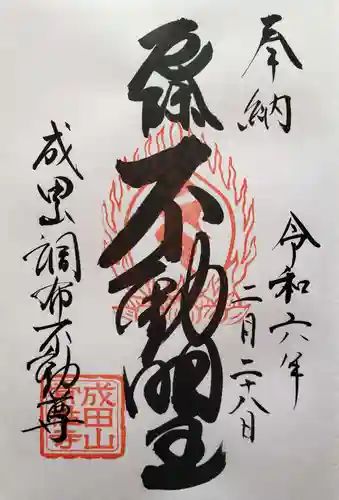 奉納
令和六年
二月二十八日
不動明王
成田山調布不動尊
成田山